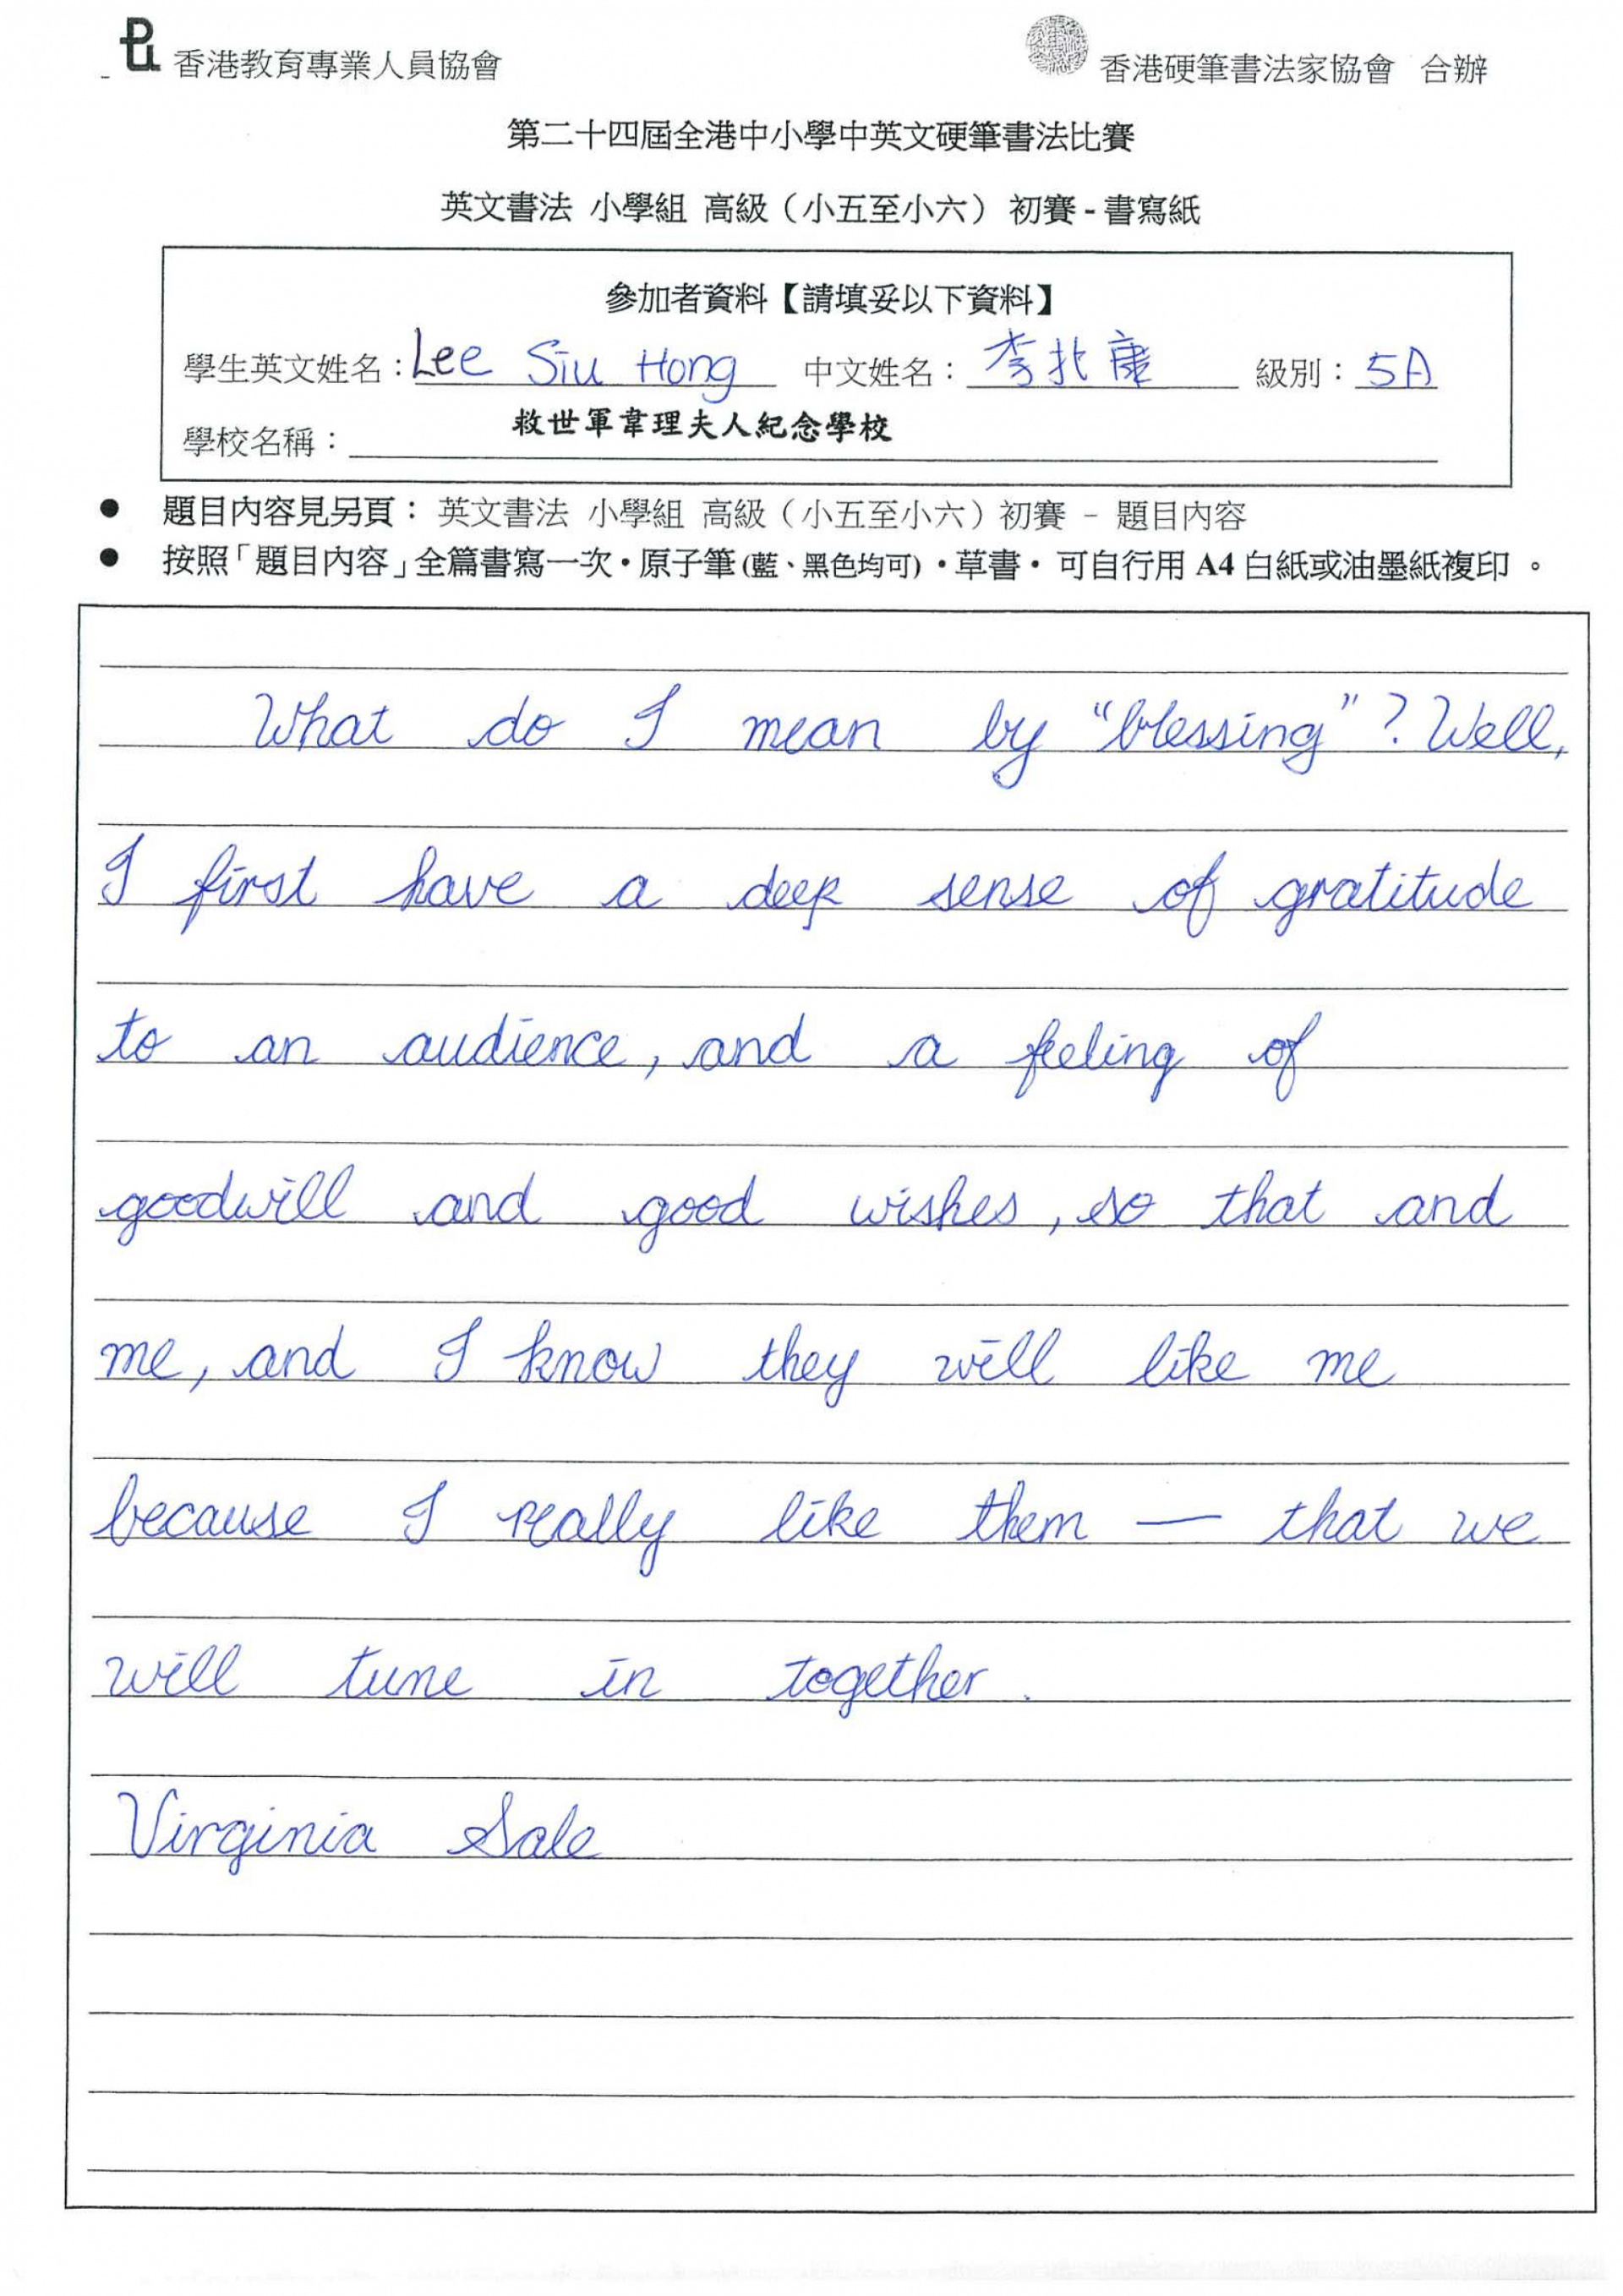 香港教育專業人員協會
香港硬筆書法家協會 合辦
第二十四屆全港中小學中英文硬筆書法比賽
英文書法 小學組 高級（小五至小六）初賽 - 書寫紙
參加者資料【請填妥以下資料】
學生英文姓名：Lee Siu Hong 中文姓名：李兆康 級別：5A
學校名稱：救世軍韋理夫人紀念學校
● 題目內容見另頁： 英文書法 小學組 高級（小五至小六）初賽 – 題目內容
● 按照「題目內容」全篇書寫一次・原子筆(藍、黑色均可)・草書・可自行用 A4 白紙或油墨紙複印 。
What do I mean by “blessing”? Well,
I first have a deep sense of gratitude
to an audience, and a feeling of
goodwill and good wishes, so that and
me, and I know they will like me
because I really like them — that we
will tune in together.
Virginia Sale